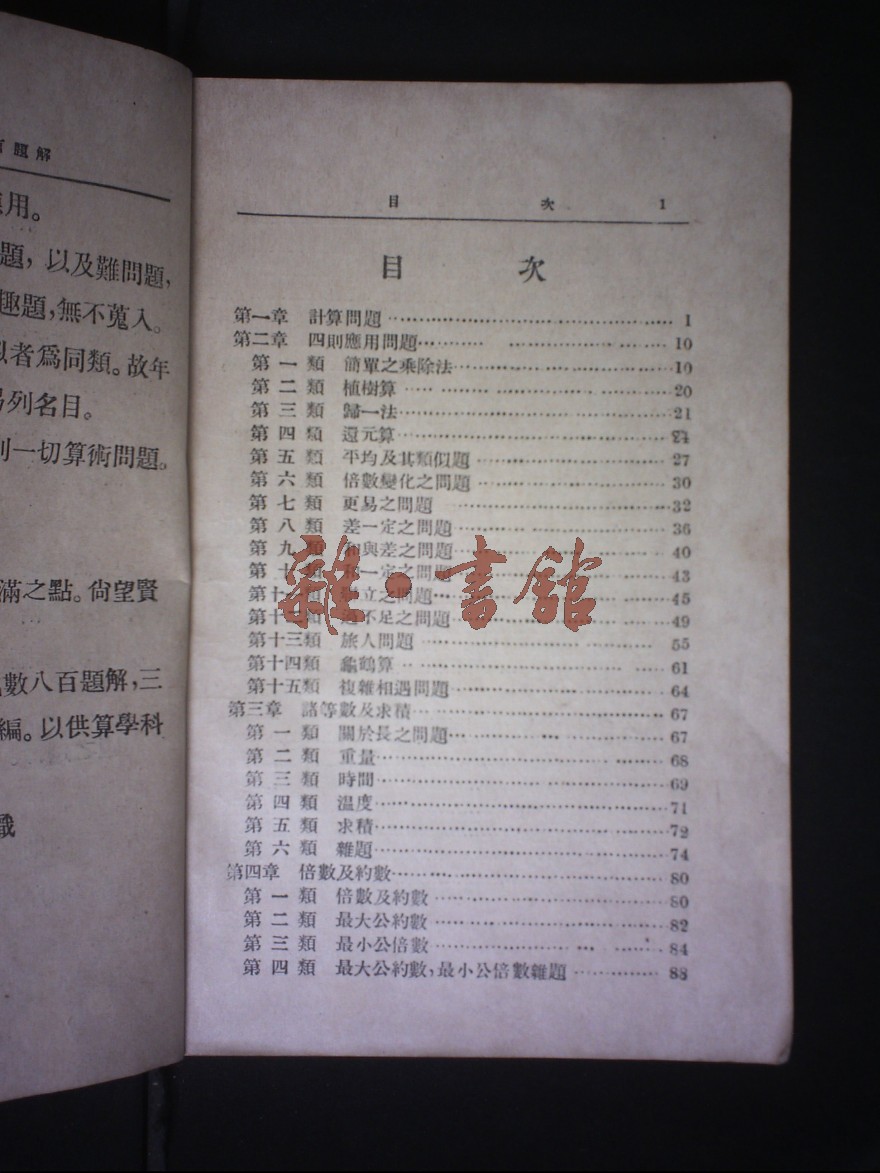 題解
用。
題，以及難問題，
趣題，無不蒐入。
者爲同類。故年
列名目。
一切算術問題。
滿之點。尙望賢
數八百題解，三
編。以供算學科
目 次 1
目 次
第一章 計算問題 1
第二章 四則應用問題 10
第一類 簡單之乘除法 10
第二類 植樹算 20
第三類 歸一法 21
第四類 還元算 24
第五類 平均及其類似題 27
第六類 倍數變化之問題 30
第七類 更易之問題 32
第八類 差一定之問題 36
第九類 和與差之問題 40
第十類 一定之問題 43
第十一類 立之問題 45
第十二類 不足之問題 49
第十三類 旅人問題 55
第十四類 龜鶴算 61
第十五類 複雜相遇問題 64
第三章 諸等數及求積 67
第一類 關於長之問題 67
第二類 重量 68
第三類 時間 69
第四類 溫度 71
第五類 求積 72
第六類 雜題 74
第四章 倍數及約數 80
第一類 倍數及約數 80
第二類 最大公約數 82
第三類 最小公倍數 84
第四類 最大公約數，最小公倍數雜題 88
雜·書館